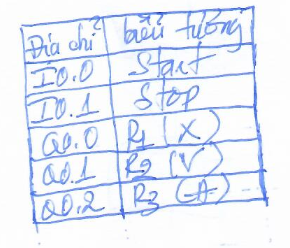 Địa chỉ biểu tượng
I0.0 Start
I0.1 Stop
Q0.0 R1 (X)
Q0.1 R2 (V)
Q0.2 R3 (-A)